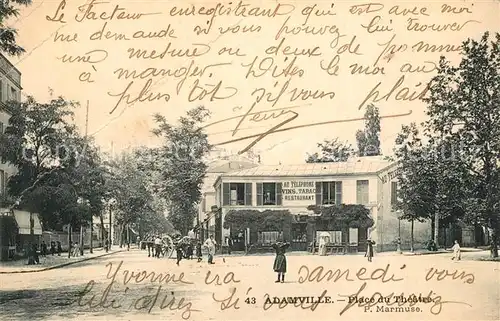 Le Facteur enregistrant qui est avec moi
me demande si vous pouvez lui trouver
une mesure ou deux de pommes
à manger. Dites le moi au
plus tôt s'il vous plait
AU TÉLÉPHONE
VINS, TABAC
RESTAURANT
Yvonne ira samedi vous
le dire si vous en
43 ADAMVILLE. - Place du Théâtre.
P. Marmuse.